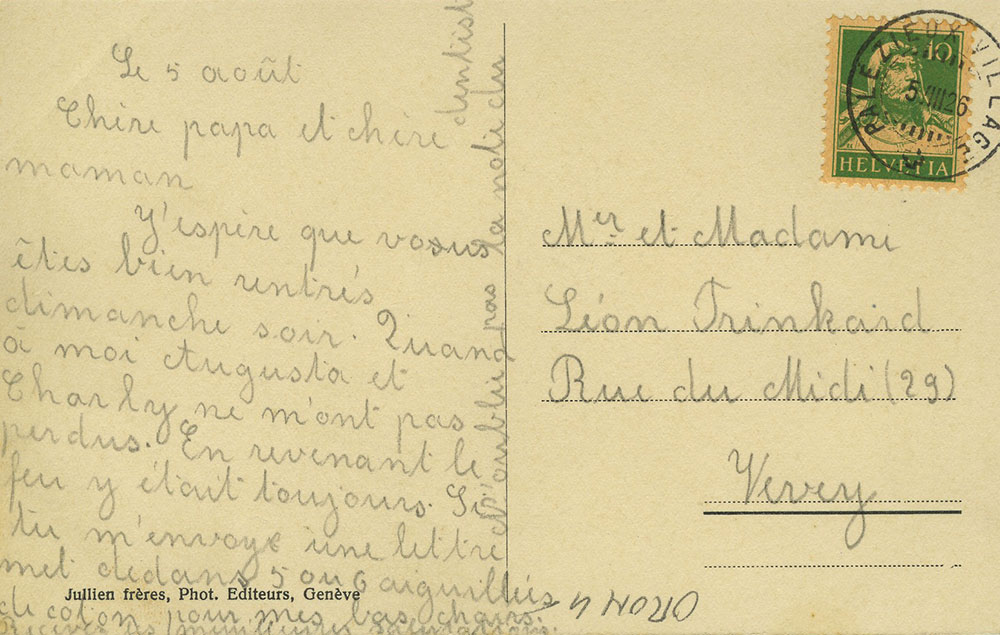 Le 5 août
Chère papa et chère
maman
Y'espère que vous
êtes bien rentrés
dimanche soir. Quand
à moi Augusta et
Charly ne m'ont pas
perdus. En revenant le
feu y était toujours. Si
tu m'envoye une lettre
met dedans 5 ou 6 aiguillées
de coton pour mes bas chairs.
Recevez les meilleures salutations.
N'oublie pas la note du
dentist
Jullien frères, Phot. Editeurs, Genève
10
HELVETIA
PALÉZIEUX VILLAGE
5.VIII.26
Mer et Madame
Léon Trinkard
Rue du Midi (29)
Vevey
ORON 4